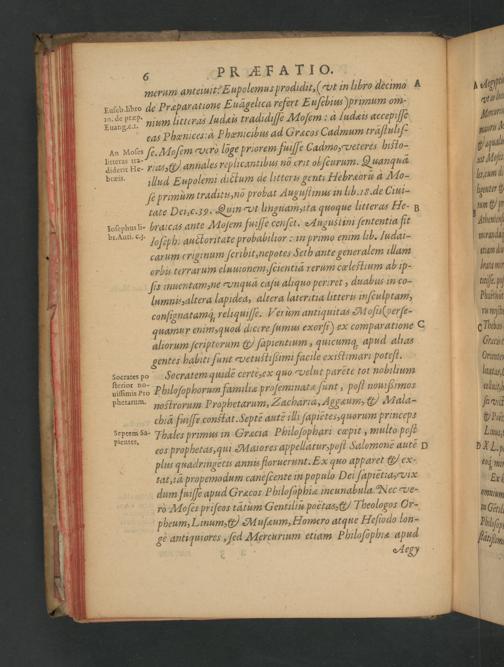 6
PRÆFATIO.
merum anteiuit. Eupolemus prodidit, (vt in libro decimo
A
Euseb.libro
10. de præp.
Euang.c.1.
de Præparatione Euāgelica refert Eusebius) primum om-
nium litteras Iudæis tradidisse Mosem: à Iudæis accepisse
eas Phœnices: à Phœnicibus ad Græcos Cadmum trāstulis-
An Moses
litteras tra-
diderit He-
bræis.
se. Mosem verò lōge priorem fuisse Cadmo, veteres histo-
rias, & annales replicantibus nō erit obscurum. Quanquā
illud Eupolemi dictum de litteris genti Hebræorū à Mo-
se primùm traditis, nō probat Augustinus in lib.18.de Ciui-
tate Dei, c.39. Quin vt linguam, ita quoque litteras He-
B
Iosephus li-
br.Anti. c.3.
braicas ante Mosem fuisse censet. Augustini sententia fit
Ioseph. auctoritate probabilior: in primo enim lib. Iudai-
carum originum scribit, nepotes Seth ante generalem illam
orbis terrarum eluuionem, scientiā rerum cœlestium ab ip-
sis inuentam, ne vnquā casu aliquo periret, duabus in co-
lumnis, altera lapidea, altera lateritia litteris insculptam,
consignatamq́; reliquisse. Verùm antiquitas Mosis (perse-
quamur enim, quod dicere sumus exorsi) ex comparatione
C
aliorum scriptorum & sapientum, quicumq; apud alias
gentes habiti sunt vetustissimi facilè existimari potest.
Socrates po
sterior no-
uissimis Pro
phetarum.
Socratem quidē certè, ex quo velut parēte tot nobilium
Philosophorum familiæ proseminatæ sunt, post nouissimos
nostrorum Prophetarum, Zachariā, Aggæum, & Mala-
chiā fuisse constat. Septē autē illi sapiētes, quorum princeps
Septem Sa-
pientes.
Thales primus in Græcia Philosophari cœpit, multo post
eos prophetas, qui Maiores appellātur, post Salomonē autē
D
plus quadringetis annis floruerunt. Ex quo apparet & ex-
tat, iā propemodum canescente in populo Dei sapiētia, vix
dum fuisse apud Græcos Philosophiæ incunabula. Nec ve-
rò Moses priscos tātùm Gentiliū poëtas, & Theologos Or-
pheum, Linum, & Musæum, Homero atque Hesiodo lon-
gè antiquiores, sed Mercurium etiam Philosophiæ apud
Aegy